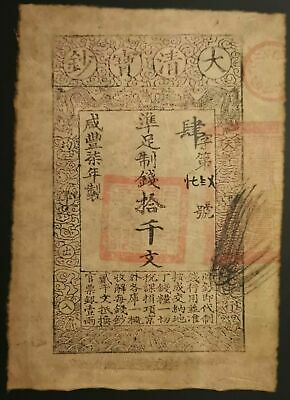 大清寶鈔
肆字第號
準足制錢拾千文
咸豐柒年製
此鈔即代制
錢行用並准
按成交納地
丁錢糧一切
稅課捐項京
外各庫一概
收解每錢鈔
貳千文抵換
官票銀壹兩